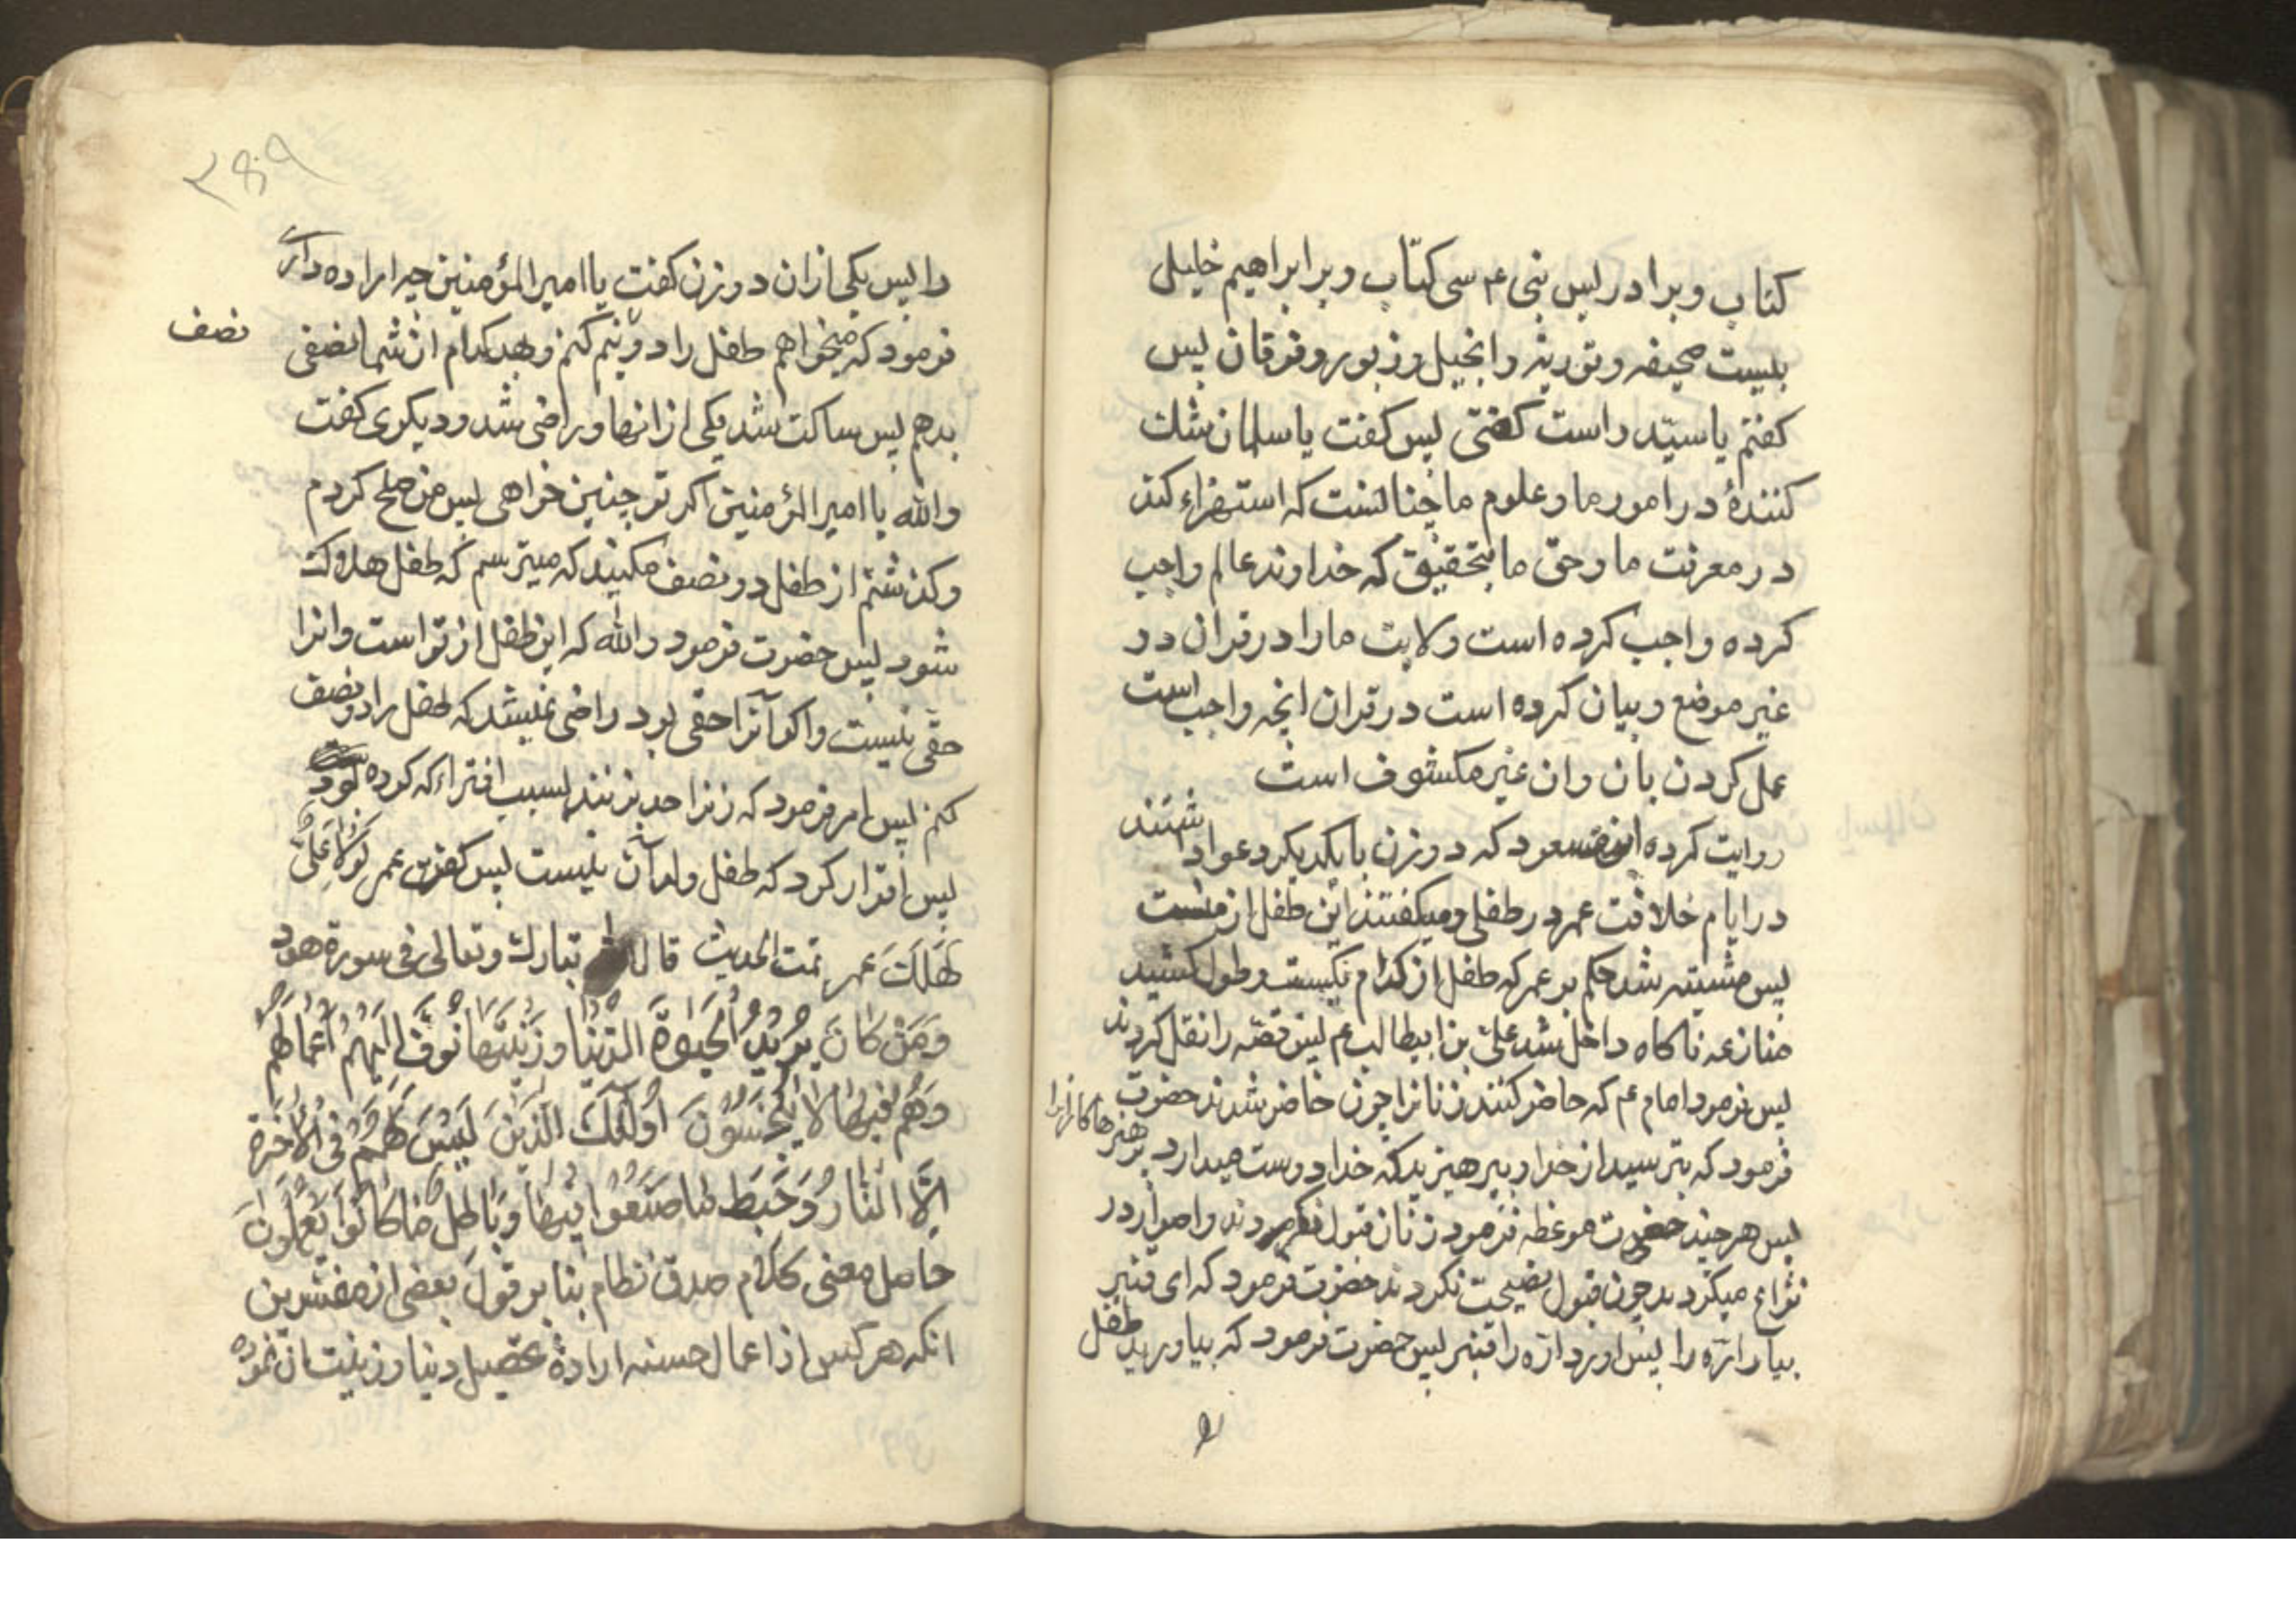 کتاب وبرادریس نبی ۴ سی کتاب وبرابراهیم خلیل
بیست صحیفه وتوریة وانجیل وزبور وفرقان پس
کفتم یا سیّد راست کفتی پس کفت یا سلمان شك
کنندهٔ در امور ما وعلوم ما چنانست که استهزاء کند
در معرفت ما وحق ما بتحقیق که خداوند عالم واجب
کرده واجب کرده است ولایت ما را در قران در
غیر موضع وبیان کرده است در قران انچه واجب است
عمل کردن بان وان غیر مکشوف است
روایت کرده ابن مسعود که دو زن با یکدیکر دعوا داشتند
در ایام خلافت عمر در طفلی ومیکفتند این طفل از منست
پس مشتبه شد حکم بر عمر که طفل از کدام یکیست وطول کشید
منازعه ناکاه داخل شد علی بن ابیطالب عم پس قصّه را نقل کردند
پس فرمود امام عم که حاضر کنند زنانرا چون حاضر شدند حضرت
فرمود که بترسید از خدا وبپرهیزید که خدا دوست میدارد پرهیزکارانرا
پس هر چند حضرت موعظه فرمود زنان قبول نکردند واصرار در
نزاع میکردند چون قبول نصیحت نکردند حضرت فرمود که ای قنبر
بیار ارّه را پس اورد ارّه را قنبر پس حضرت فرمود که بیاورید طفل
۳۸۹
را پس یکی از ان دو زن کفت یا امیر المؤمنین چه اراده داری
فرمود که میخواهم طفل را دو نیم کنم وبهر کدام از شما نصفی
نصف
بدهم پس ساکت شد یکی از انها وراضی شد ودیکری کفت
والله یا امیر المؤمنین اکر تو چنین خواهی پس من صلح کردم
وکذشتم از طفل دو نصف مکنید که میترسم که طفل هلاک
شود پس حضرت فرمود والله که این طفل از تو است وانرا
حقّی نیست واکر آنرا حقی بود راضی نمیشد که طفل را دو نصف
کنم پس امر فرمود که زنرا حد بزنند بسبب افتراء که کرده بود
پس اقرار کرد که طفل ولد آن نیست پس کفت عمر لَوْلا عَلیٌّ
لَهَلَكَ عمر تمت الحدیث قال الله تبارك وتعالی فی سورة هود
وَمَنْ كَانَ يُرِيْدُ الْحَيٰوةَ الدُّنْيا وَزِيْنَتَهَا نُوَفِّ اِلَيْهِمْ اَعْمَالَهُمْ
وَهُمْ فيهَا لَا يُبْخَسُونَ اُولٰئِكَ الَّذِيْنَ لَيْسَ لَهُمْ فِى الْاٰخِرَةِ
اِلَّا النَّارُ وَحَبِطَ مَا صَنَعُوا فِيْهَا وَبَاطِلٌ مَا كَانُوا يَعْمَلُوْنَ
حاصل معنی کلام صدق نظام بنا بر قول بعضی از مفسّرین
انکه هر کس از اعمال حسنه ارادهٔ تحصیل دنیا وزینت ان نموده